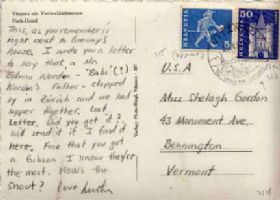 Vitznau am Vierwaldstättersee
Park-Hotel
This, as you remember is
right next to Granny's
house. I wrote you a letter
to say that, a Mr.
Edwin Worden - "Babi" (?)
Worden's Father - stopped
by in Zurich and we had
supper together. Last
letter, did you get it? I'll
send it if I find it
here. Fine that you got
a Gibson I know they're
the most. How's the
Snout? Love
HELVETIA
5
HELVETIA
50
U.S.A
Miss Shelagh Gordon
43 Monument Ave.
Bennington
Vermont